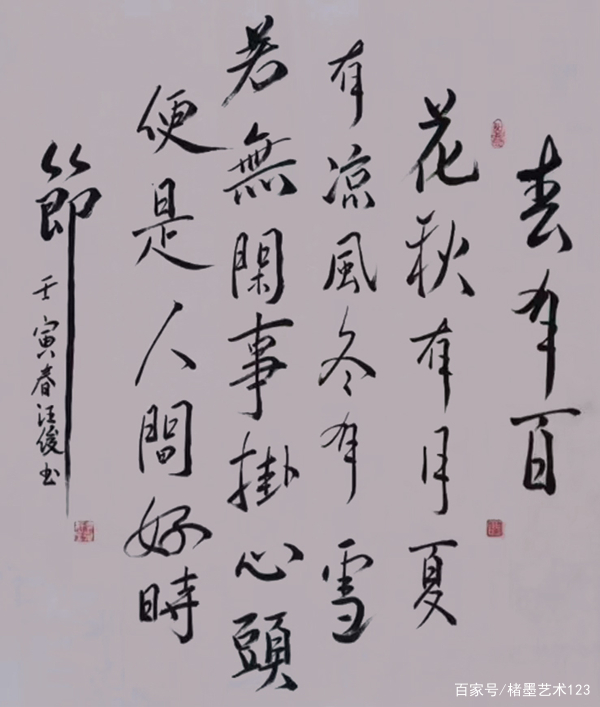 春有百
花秋有月夏
有凉風冬有雪
若無閑事掛心頭
便是人間好時
節
壬寅春汪俊書
百家号/楮墨艺术123